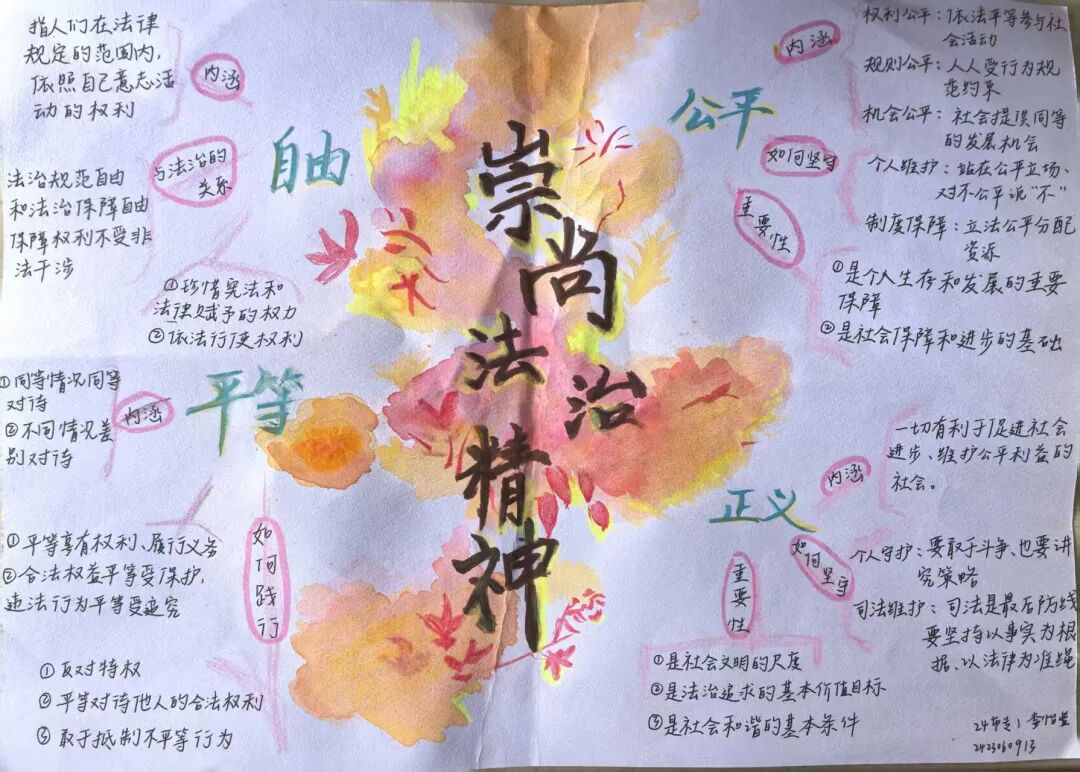 崇尚法治精神
自由
内涵
指人们在法律
规定的范围内,
依照自己意志活
动的权利
与法治的
关系
法治规范自由
和法治保障自由
保障权利不受非
法干涉
①珍惜宪法和
法律赋予的权力
②依法行使权利
平等
内涵
①同等情况同等
对待
②不同情况差
别对待
①平等享有权利、履行义务
②合法权益平等受保护,
违法行为平等受追究
如何践行
①反对特权
②平等对待他人的合法权利
③敢于抵制不平等行为
公平
内涵
权利公平:依法平等参与社
会活动
规则公平:人人受行为规
范约束
机会公平:社会提供同等
的发展机会
如何坚守
个人维护:站在公平立场、
对不公平说“不”
制度保障:立法公平分配
资源
重要性
①是个人生存和发展的重要
保障
②是社会保障和进步的基础
正义
内涵
一切有利于促进社会
进步、维护公平利益的
社会。
如何坚守
个人守护:要敢于斗争、也要讲
究策略
司法维护:司法是最后防线
要坚持以事实为根
据、以法律为准绳
重要性
①是社会文明的尺度
②是法治追求的基本价值目标
③是社会和谐的基本条件
2423060913